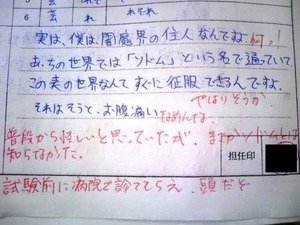 5 玄 れ それぞれ
6 玄 れ
実は、僕は、闇魔界の住人なんですね 何っ!
あっちの世界では「ソドム」という名で通っていて
この表の世界なんて すぐに征服できるんですよ。
やはりそうか
それはそうと、お腹痛い
なめんな
普段から怪しいと思っていたが、まさかソドムとは
知らなかった。
担任印
試験前に病院で診てもらえ 頭だぞ